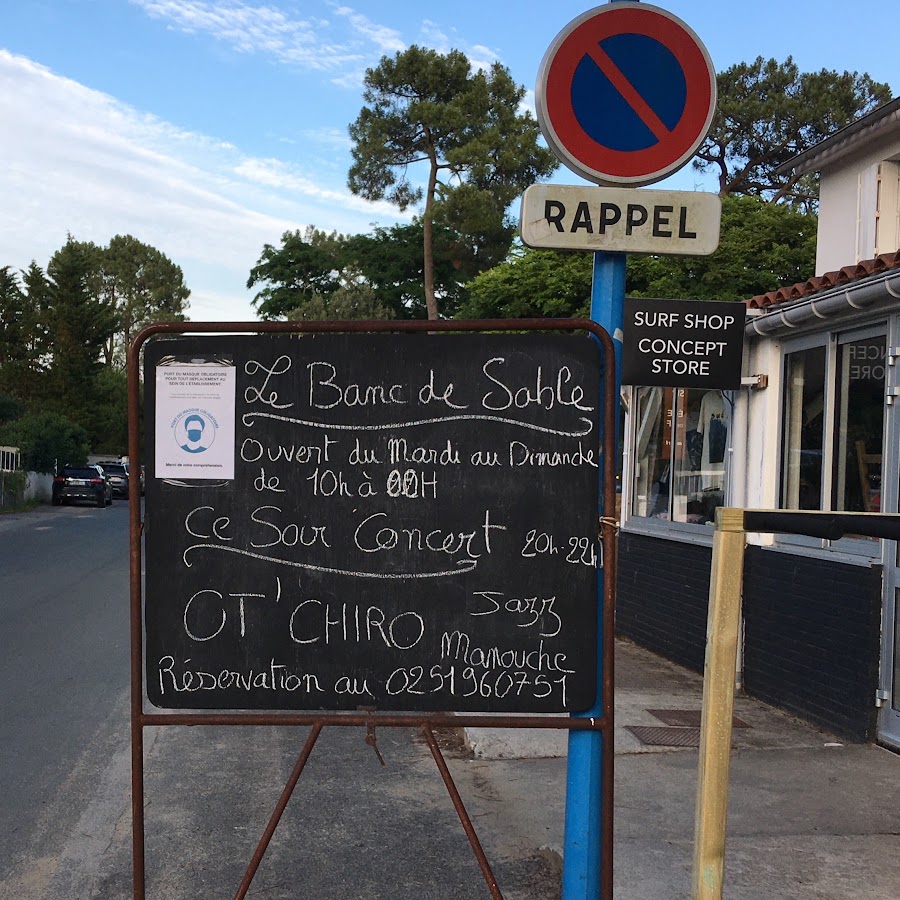 RAPPEL
SURF SHOP
CONCEPT
STORE
PORT DU MASQUE OBLIGATOIRE
POUR TOUT DEPLACEMENT AU
SEIN DE L'ETABLISSEMENT
PORT DU MASQUE OBLIGATOIRE
Merci de votre compréhension.
Le Banc de Sable
Ouvert du Mardi au Dimanche
de 10h à 00H
Ce Soir Concert 20h-22h
OT'CHIRO Jazz
Manouche
Réservation au 0251960751